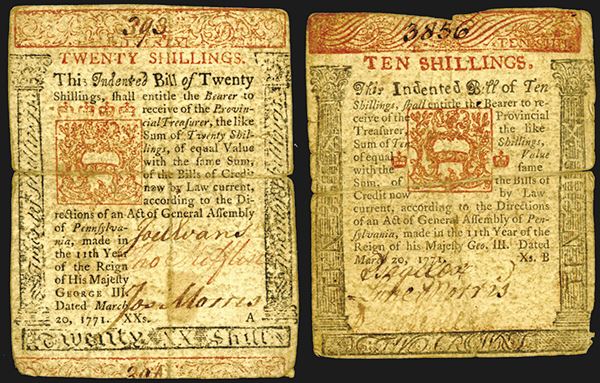 393
TWENTY SHILLINGS.
This Indented Bill of Twenty
Shillings, shall entitle the Bearer to
receive of the Provin-
cial Treasurer, the like
Sum of Twenty Shil-
lings, of equal Value
with the same Sum,
of the Bills of Credit
now by Law current,
according to the Di-
rections of an Act of General Assembly
of Pennsylva-
nia, made in
the 11th Year
of the Reign
of His Majesty
GEORGE III.
Dated March
20, 1771. XXs. A
Joel Evans
Jos Morris
Twenty XX Shill
3856
TEN SHILLINGS.
This Indented Bill of Ten
Shillings, shall entitle the Bearer to re-
ceive of the Provincial
Treasurer, the like
Sum of Ten Shillings,
of equal Value
with the same
Sum, of the Bills of
Credit now by Law
current, according to the Directions
of an Act of General Assembly of Penn-
sylvania, made in the 11th Year of the
Reign of his Majesty Geo. III. Dated
March 20, 1771. Xs. B
Morris